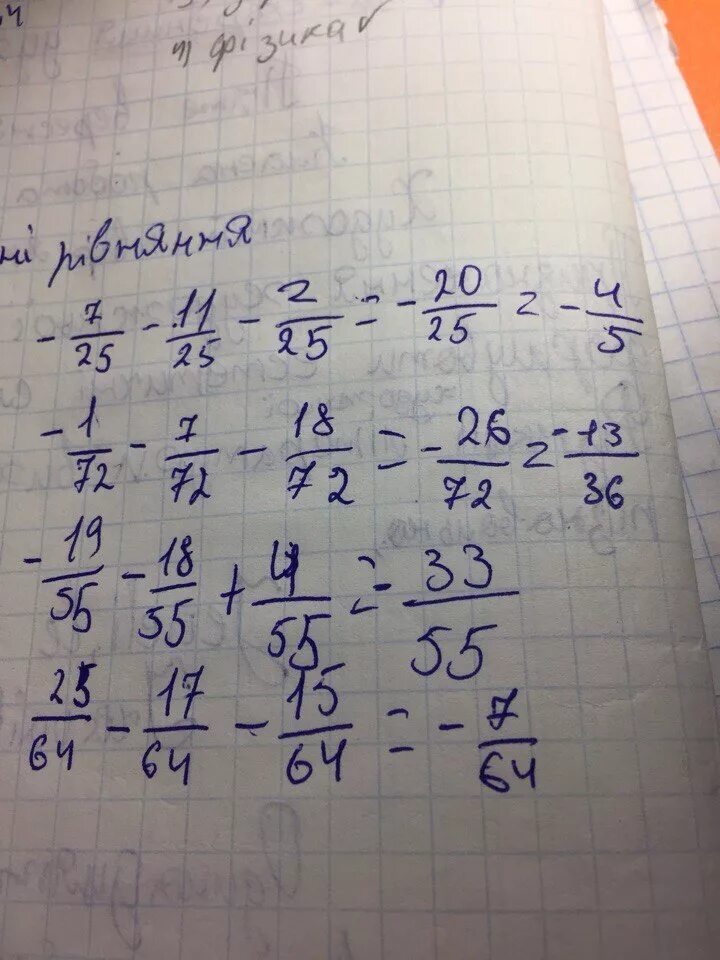 11) фізика ✓
ні рівняння
- 7/25 - 11/25 - 2/25 = - 20/25 = - 4/5
- 1/72 - 7/72 - 18/72 = - 26/72 = - 13/36
- 19/55 - 18/55 + 4/55 = - 33/55
25/64 - 17/64 - 15/64 = - 7/64